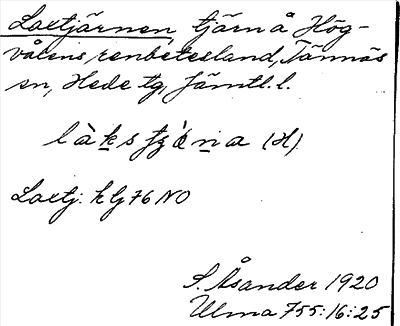 Laxtjärnen, tjärn å Hög-
vålens renbetesland, Tännäs
sn, Hede tg, Jämtl. l.
(H)
Laxtj. k G 76 NO
S. Åsander 1920
Ulma 755:16:25